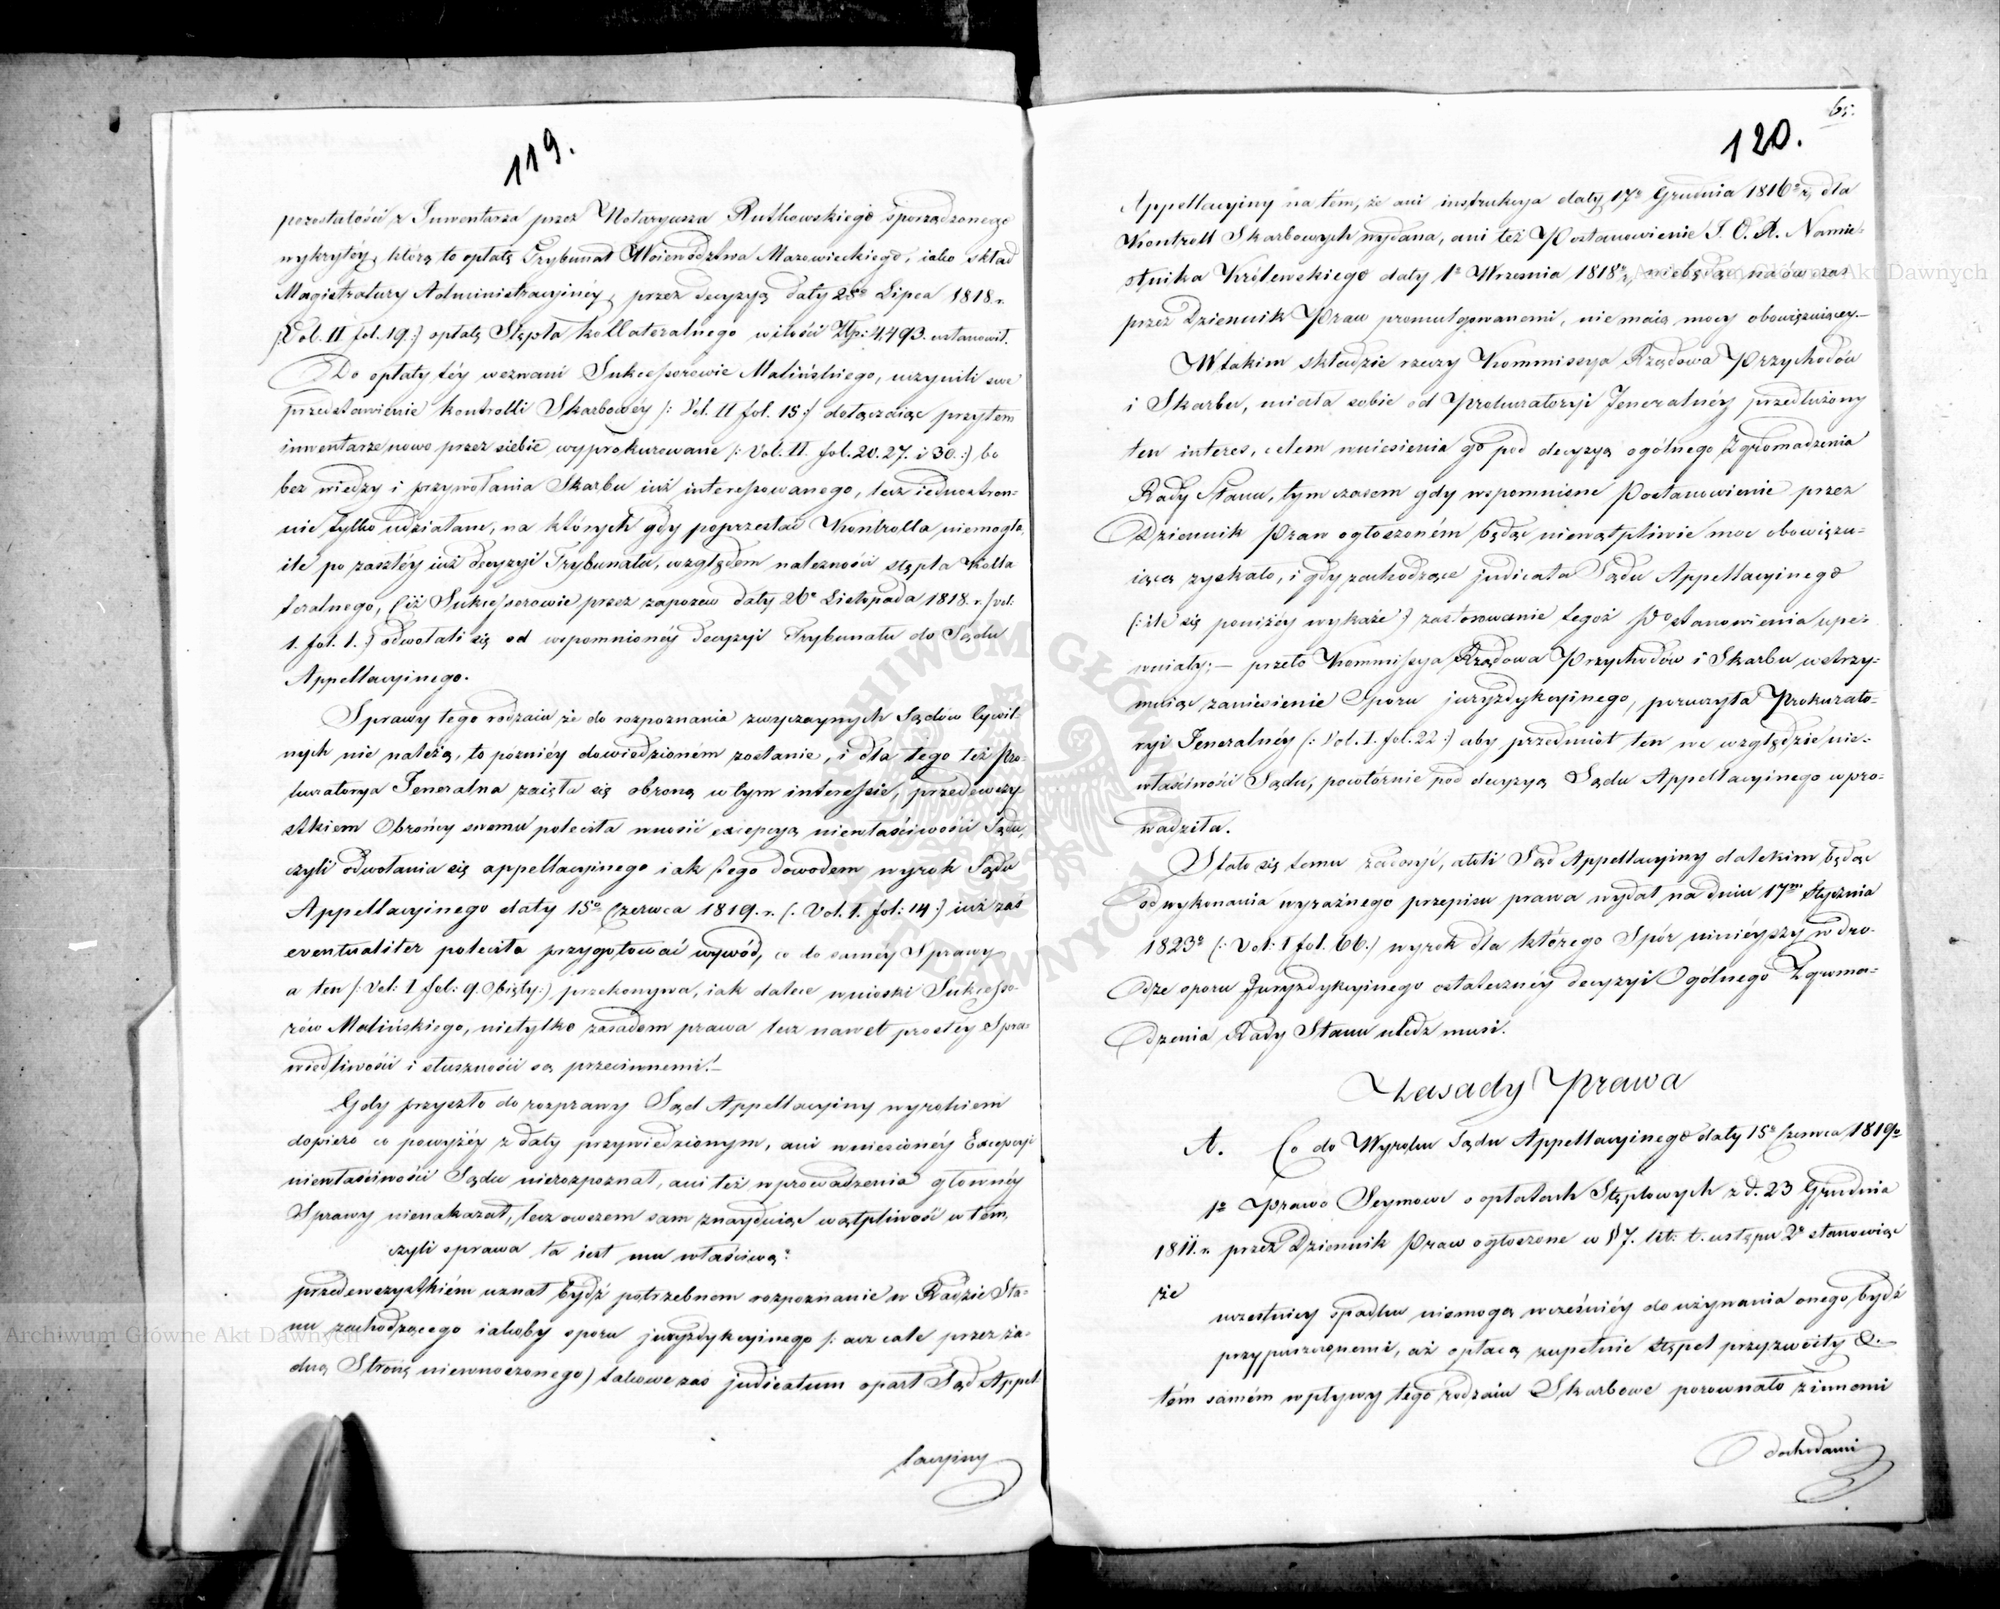 119.
pozostałości z Inwentarza przez Notaryusza Rutkowskiego sporządzonego
wykrytéy, którą to opłatę Trybunał Woiewództwa Mazowieckiego, iako skład
Magistratury Administracyinéy, przez decyzyą daty 28º Lipca 1818 r.
/: Vol. II fol. 19 :/ opłatę Stępla kollateralnego w ilości Złp: 4,493. ustanowił.
Do opłaty téy wezwani Sukcessorowie Malińskiego, uczynili swe
przedstawienie kontrolli Skarbowéy /: Vol. II fol. 15 :/ dołączaiąc przytem
inwentarze nowe przez siebie wyprokurowane /: Vol. II. fol. 20. 27. i 30. :/ bo
bez wiedzy i przywołania Skarbu iuż interessowanego, lecz iednostron-
nie tylko udziałane, na których gdy poprzestać Kontrolla niemogła,
ile po zaszłéy iuż decyzyi Trybunału, względem należności stępla Kolla
teralnego, Ciż Sukcessorowie przez zapozew daty 26º Listopada 1818. r. /: vol:
1. fol. 1. :/ odwołali się od wspomnionéy decyzyi Trybunału do Sądu
Appellacyinego.
Sprawy tego rodzaiu że do rozpoznania zwyczaynych Sądów Cywil-
nych nie należą, to późniéy dowiedzioném zostanie, i dla tego też Pro-
kuratorya Jeneralna zaięła się obroną w tym interessie, przedewszy
stkiem Obrońcy swemu poleciła wnosić excepcyą niewłaściwości Sądu,
czyli odwołania się appellacyinego iak tego dowodem wyrok Sądu
Appellacyinego daty 15º Czerwca 1819. r. /: Vol. I. fol: 14 :/ iuż zaś
eventualiter poleciła przygotować wywód, co do saméy Sprawy
a ten /: Vol: I fol: 9. Obięty :/, przekonywa, iak dalece wnioski Sukcesso-
rów Malińskiego, nietylko zasadom prawa lecz nawet prostéy Spra-
wiedliwości i słuszności są przeciwnemi! –
Gdy przyszło do rozprawy Sąd Appellacyiny wyrokiem
dopiero co powyżéy z daty przywiedzionym, ani wniesionéy Excepcyi
niewłaściwości Sądu nierozpoznał, ani też wprowadzenia głownéy
Sprawy nienakazał, lecz owszem sam znayduiąc wątpliwość w tém,
czyli sprawa ta iest mu właściwą?
przedewszystkiém uznał bydź potrzebnem rozpoznanie w Radzie Sta-
nu zachodzącego iakoby sporu jurysdykcyinego /: acz cale przez ża-
dną Stronę niewnoszonego) takowe zaś judicatum oparł Sąd Appel-
lacyiny
65.
120.
Appellacyiny na tém, że ani instrukcya daty 17º Grudnia 1816º r. dla
Kontroll Skarbowych wydana, ani też Postanowienie J. O. X. Namie-
stnika Królewskiego daty 1º Września 1818º r. niebędąc na ów czas
przez Dziennik Praw promulgowanemi, nie maią mocy obowięzuiącey. –
W takim składzie rzeczy Kommissya Rządowa Przychodów
i Skarbu, miała sobie od Prokuratoryi Jeneralnéy przedłużony
ten interes, celem wniesienia go pod decyzyą ogólnego Zgromadzenia
Rady Stanu, tymczasem gdy wspomnione Postanowienie przez
Dziennik Praw ogłoszoném będąc niewątpliwie moc obowięzu-
iącą zyskało, i gdy zachodzące judicata Sądu Appellacyinego
(: iak się poniżéy wykaże :) zastosowanie tegoż Postanowienia upe-
wniały; – przeto Kommissya Rządowa Przychodów i Skarbu wstrzy-
muiąc zaniesienie Sporu juryzdykcyinego, poruczyła Prokurato-
ryi Jeneralnéy (: Vol. I. fol. 22 :) aby przedmiot ten we względzie nie-
właściwości Sądu, powtórnie pod decyzyą Sądu Appellacyinego wpro-
wadziła.
Stało się temu zadosyć, atoli Sąd Appellacyiny dalekim będąc
od wykonania wyraźnego przepisu prawa wydał na dniu 17m Stycznia
1823º (: Vol: I fol. 66. :) wyrok dla którego Spór ninieyszy w dro-
dze sporu Juryzdykcyinego ostateczney decyzyi Ogólnego Zgroma-
dzenia Rady Stanu uledz musi.
Zasady Prawa
A. Co do Wyroku Sądu Appellacyinego daty 15º Czerwca 1819º
1º Prawo Seymowe o opłatach Stęplowych z d. 23 Grudnia
1811. r. przez Dziennik Praw ogłoszone w § 7. lit: t. ustępu 2º stanowiąc
że
uczestnicy spadku niemogą wcześniéy do używania onego bydź
przypuszczonemi, aż opłacą zupełnie stępel przyzwoity &.
tém samém wpływy tego rodzaiu Skarbowe porównało z innemi
dochodami
Archiwum Główne Akt Dawnych
Archiwum Główne Akt Dawnych
ARCHIWUM GŁÓWNE AKT DAWNYCH